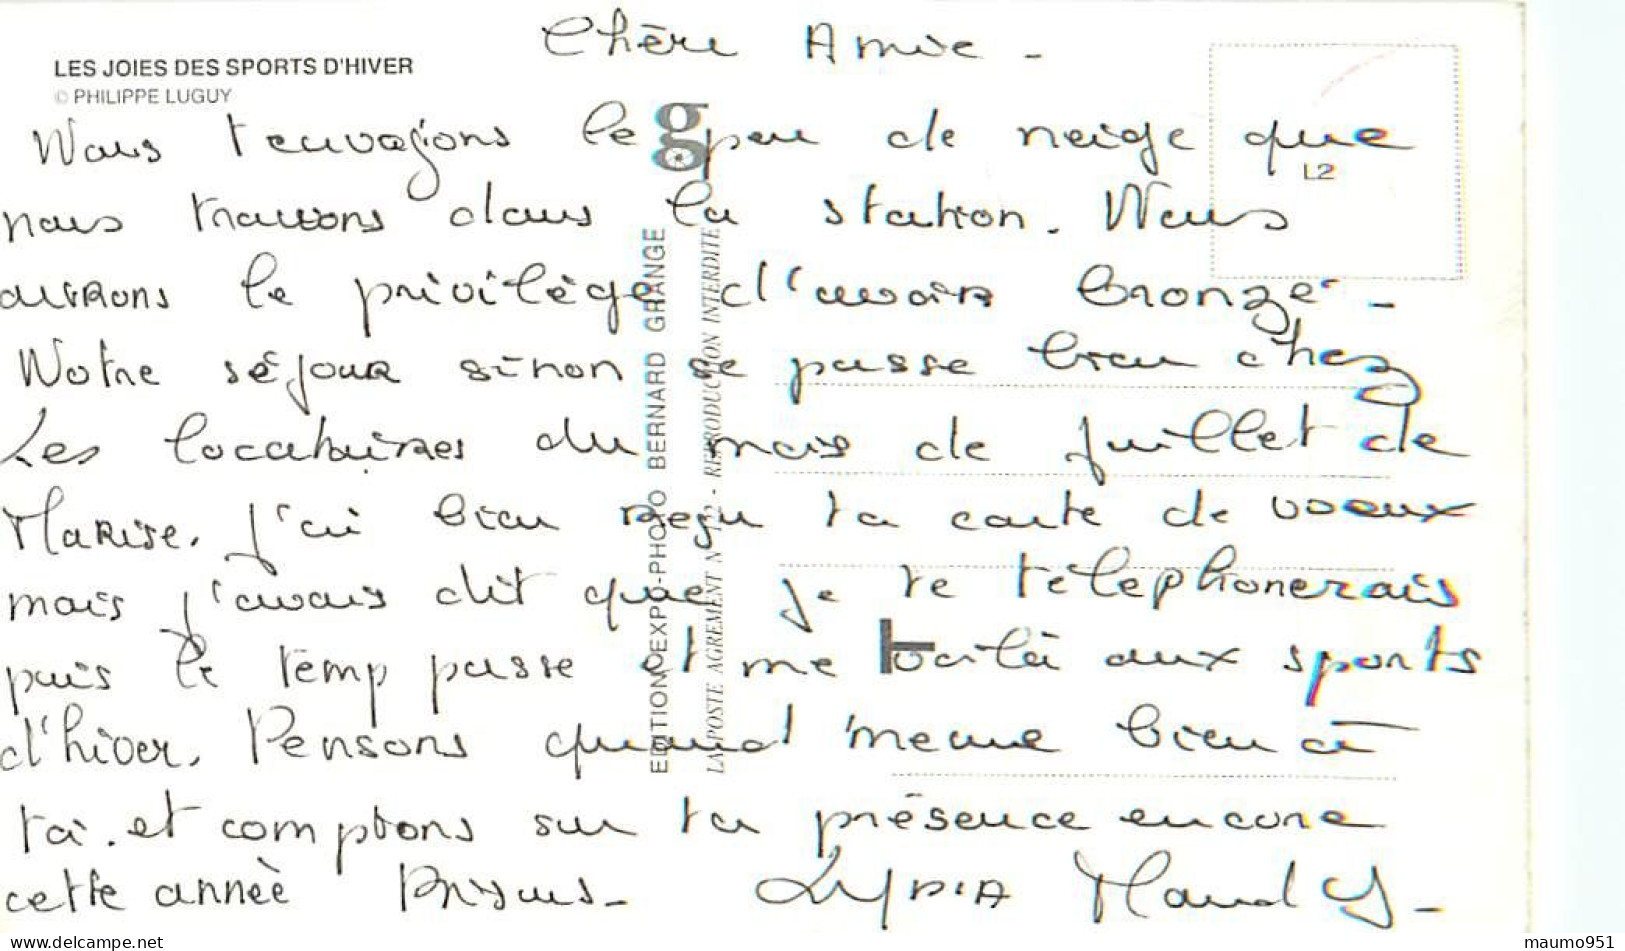 Chère Amie -
LES JOIES DES SPORTS D'HIVER
© PHILIPPE LUGUY
Nous t'envoyons le peu de neige que
L2
nous trouvons dans la station. Nous
aurons le privilège d'avoir bronzé -
Notre séjour sinon se passe bien chez
Les locataires du mois de juillet de
Marise. J'ai bien reçu ta carte de voeux
mais j'avais dit que je te télephonerais
puis le temp passe et me voilà aux sports
d'hiver. Pensons quand même bien à
toi. et comptons sur ta présence encore
cette année Bisous - Lydia
EDITION EXPA-PHOTO BERNARD GRANGE
LA POSTE AGREMENT N° - REPRODUCTION INTERDITE
maumo951